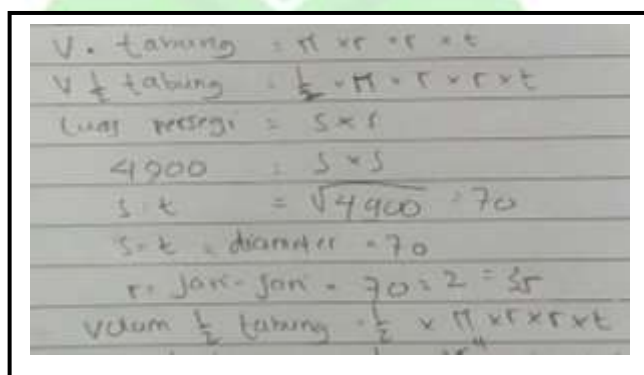 V. tabung = π × r × r × t
V ½ tabung = ½ × π × r × r × t
Luas persegi = s × s
4900 = s × s
s = t = √4900 = 70
s = t = diameter = 70
r = jari-jari = 70 : 2 = 35
Volum ½ tabung = ½ × π × r × r × t